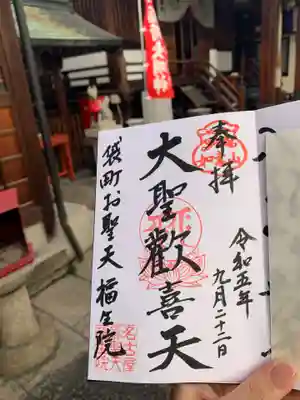 奉拝
令和五年
九月二十二日
大聖歡喜天
袋町お聖天 福生院
名古屋